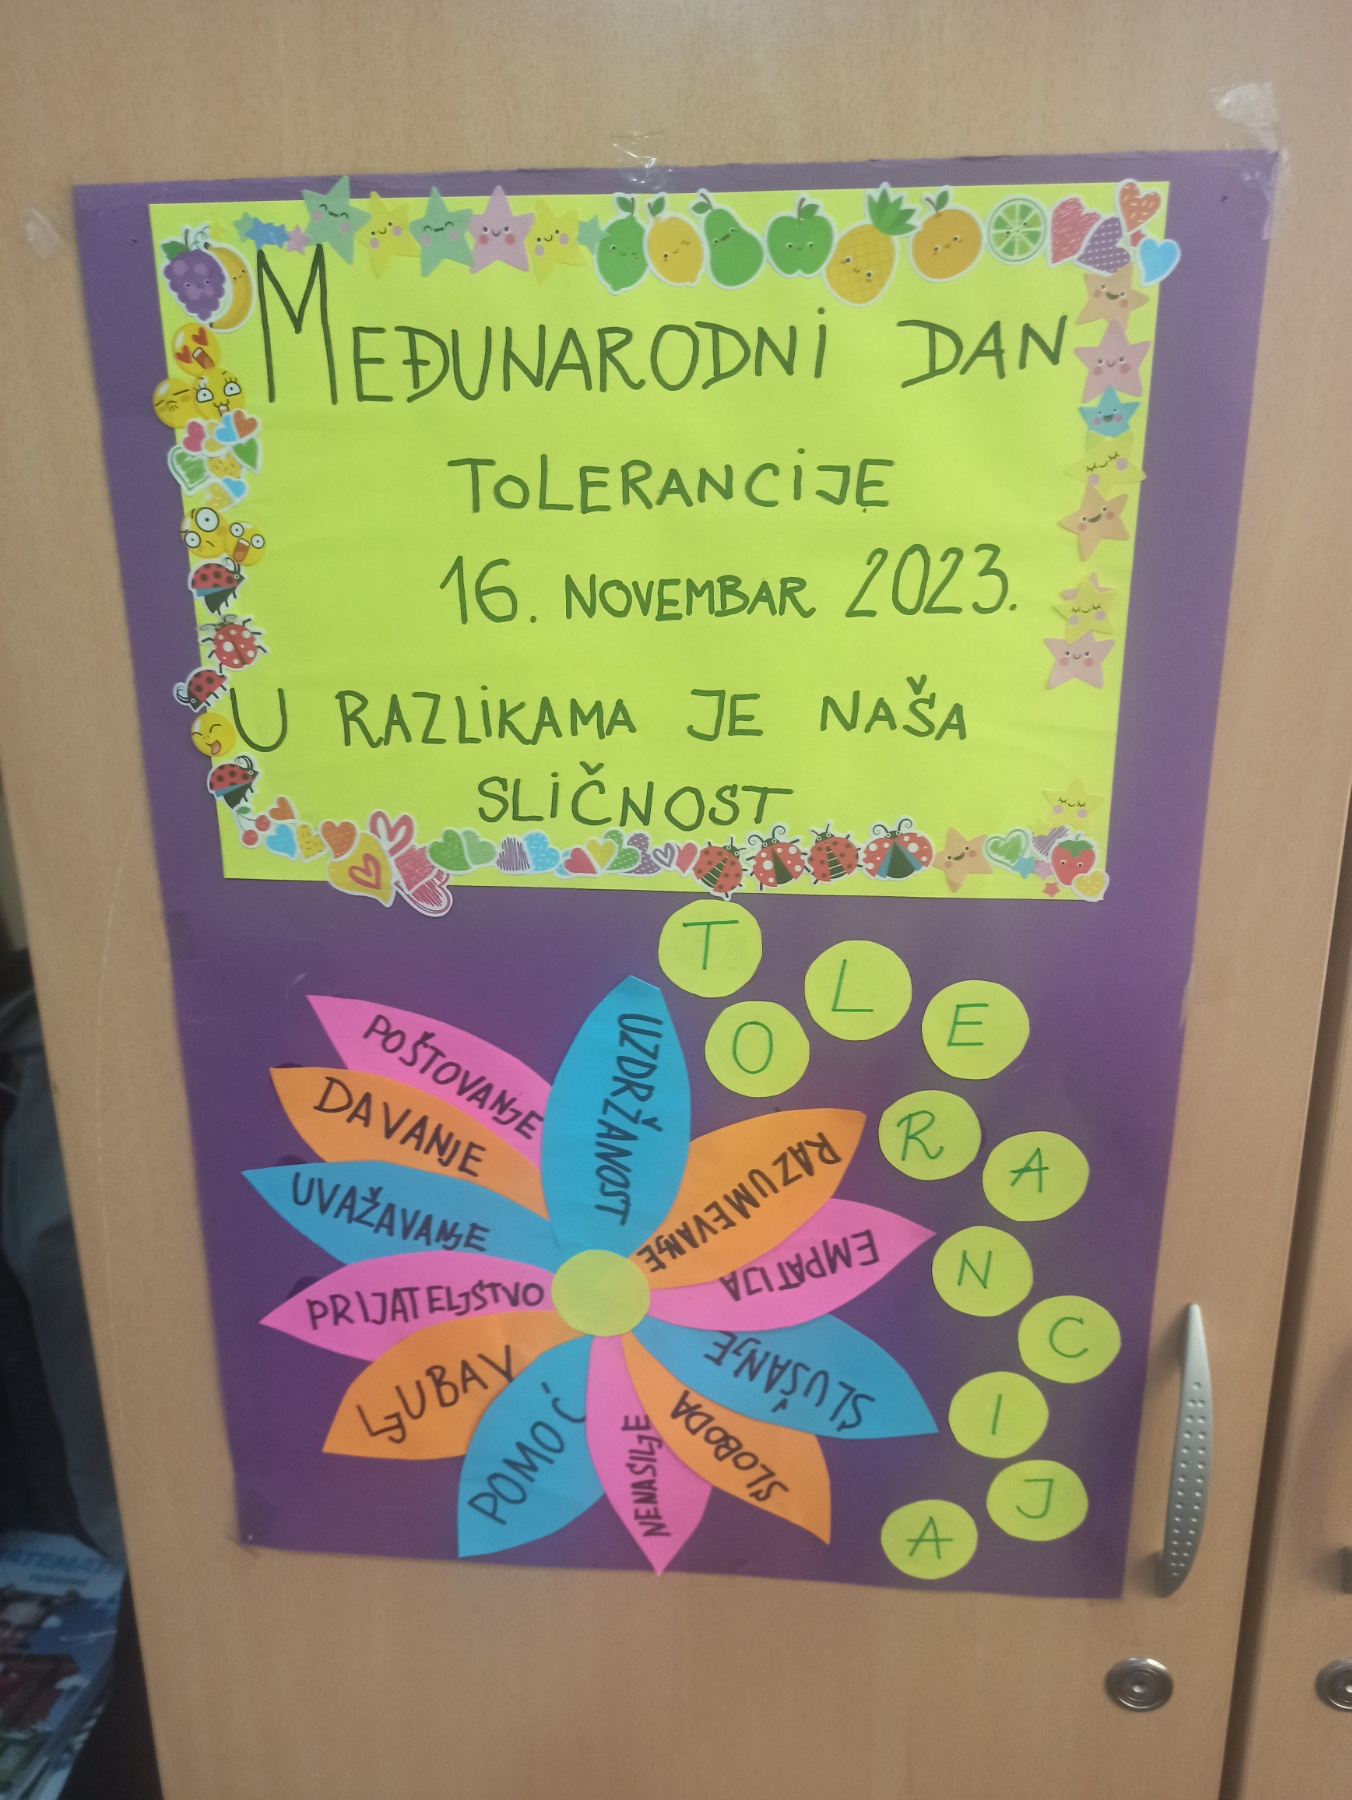 MEĐUNARODNI DAN
TOLERANCIJE
16. NOVEMBAR 2023.
U RAZLIKAMA JE NAŠA
SLIČNOST
TOLERANCIJA
UZDRŽANOST
RAZUMEVANJE
EMPATIJA
SLUŠANJE
SLOBODA
NENASILJE
POMOĆ
LJUBAV
PRIJATELJSTVO
UVAŽAVANJE
DAVANJE
POŠTOVANJE